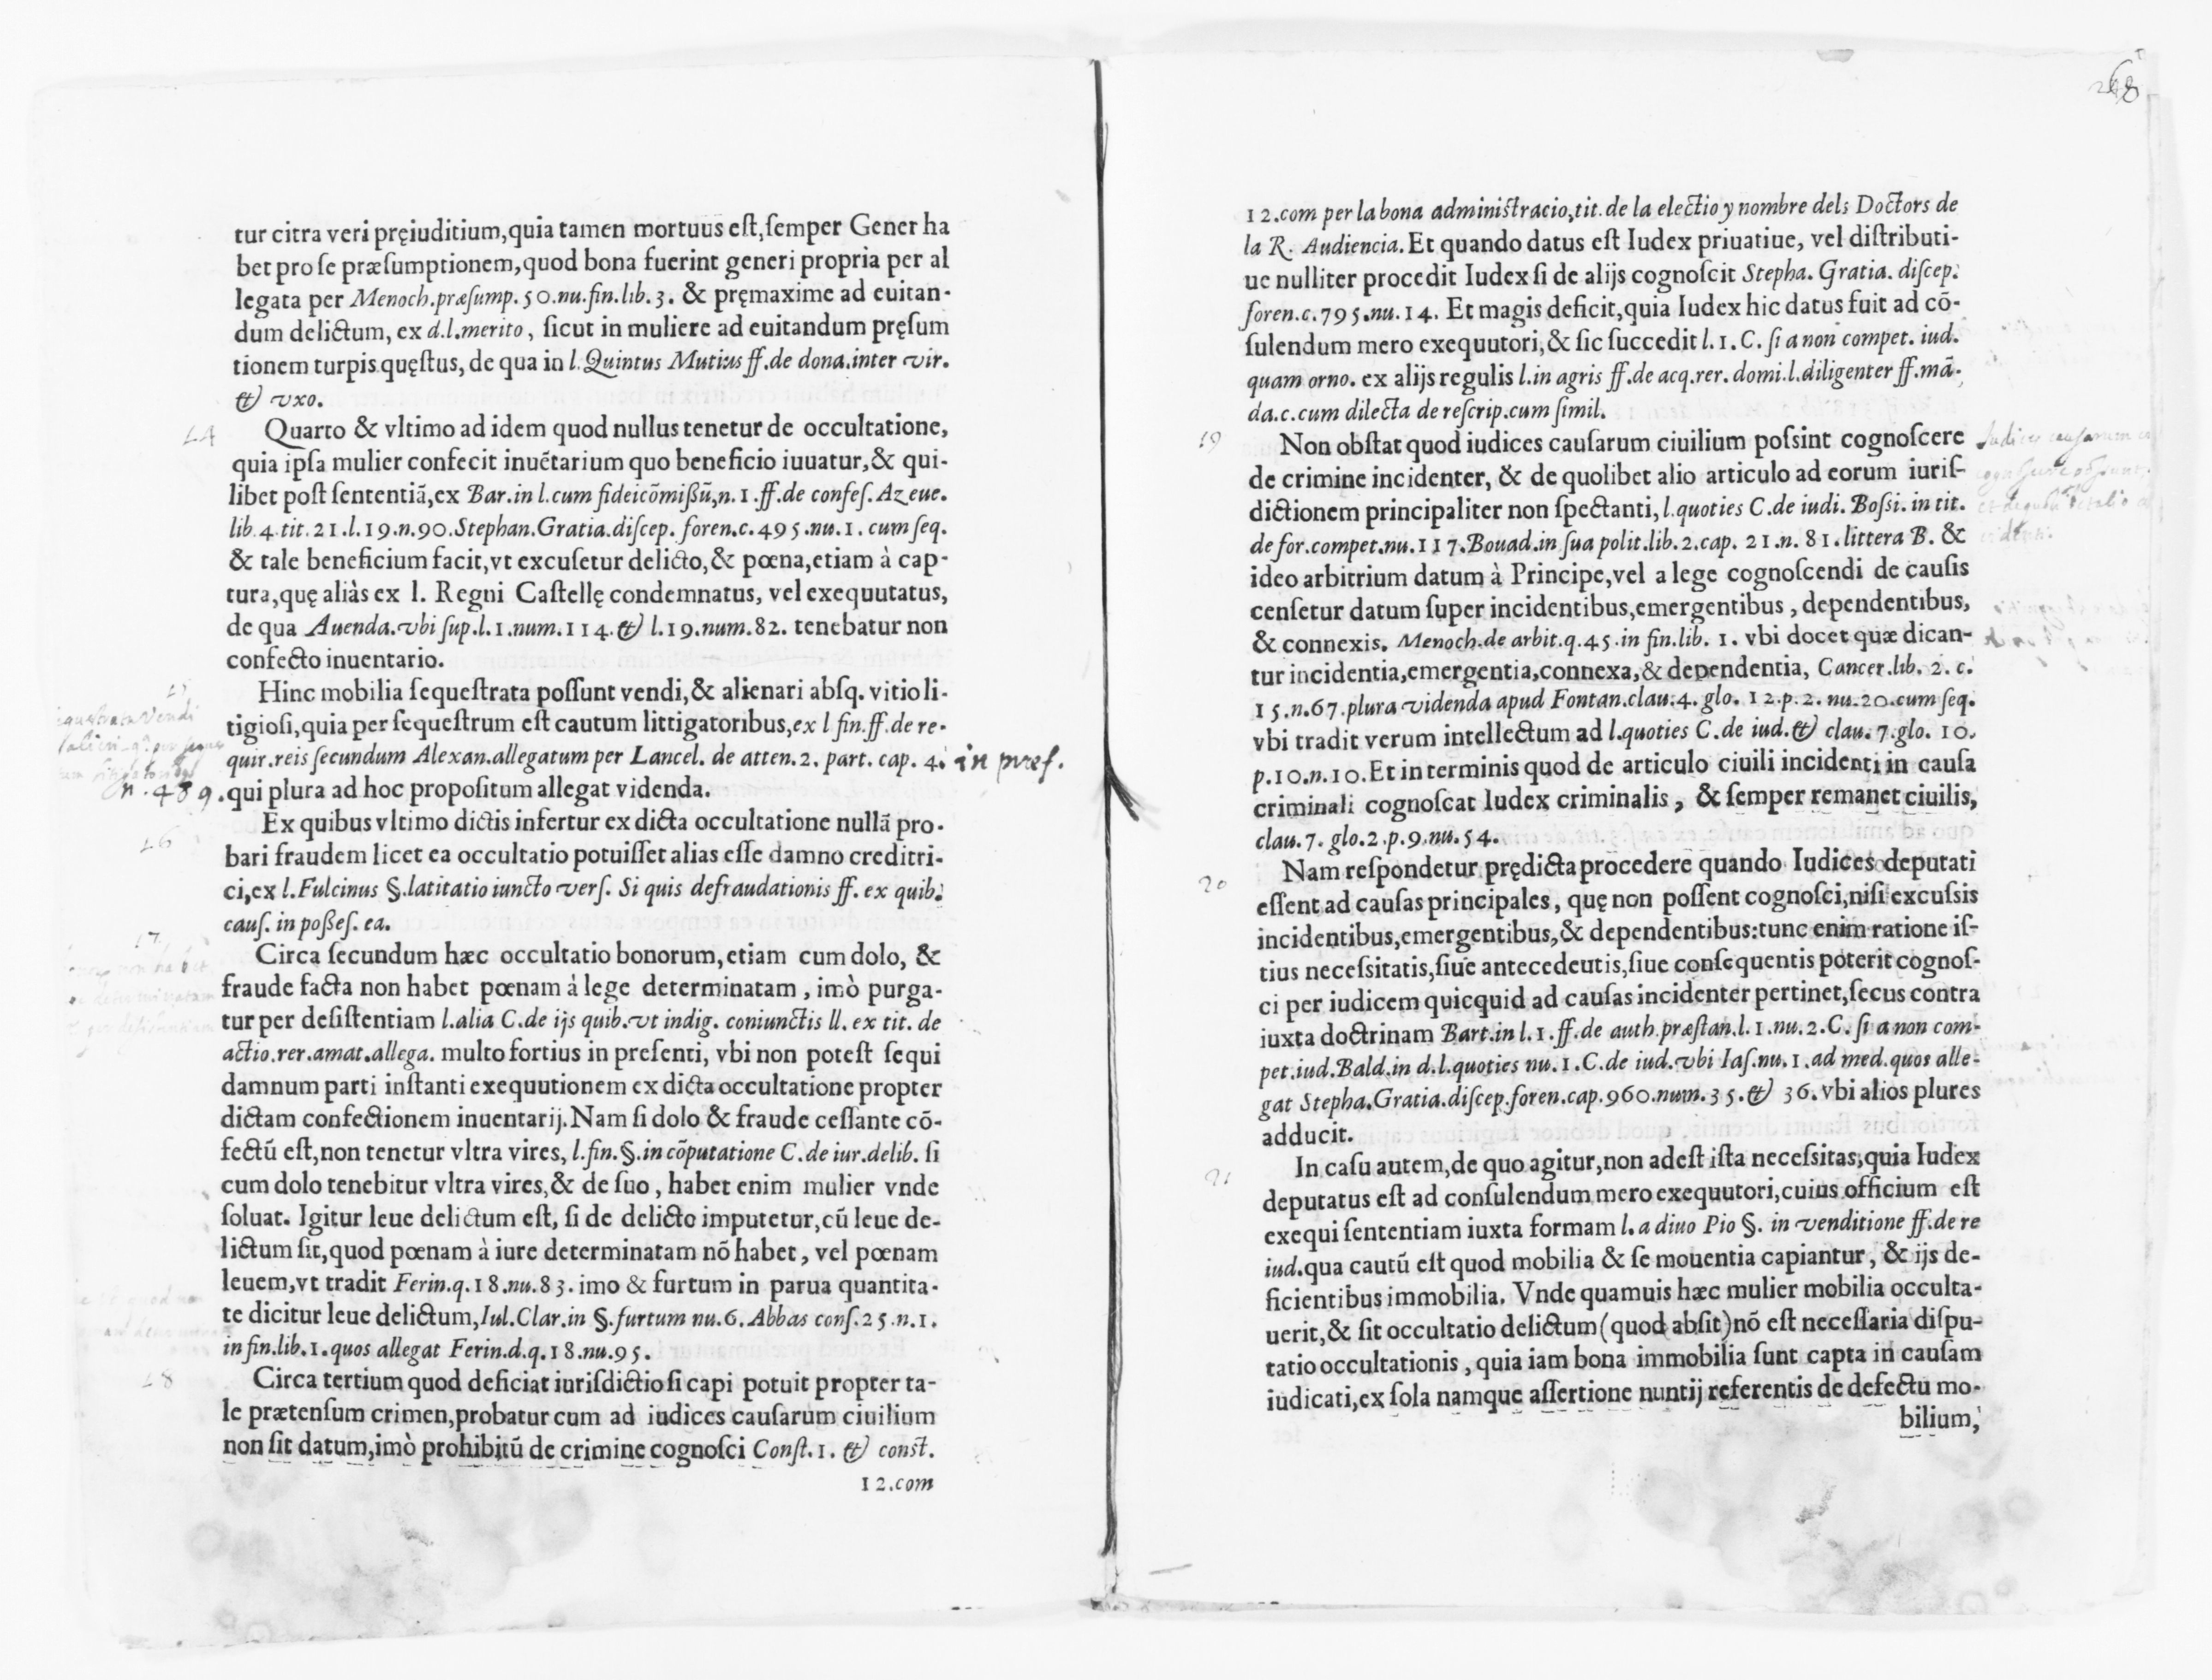 tur citra veri pręiuditium,quia tamen mortuus est,semper Gener ha
bet pro se præsumptionem,quod bona fuerint generi propria per al
legata per Menoch.præsump.50.nu.fin.lib.3. & pręmaxime ad euitan-
dum delictum, ex d.l.merito, sicut in muliere ad euitandum pręsum
tionem turpis quęstus, de qua in l.Quintus Mutius ff.de dona.inter vir.
& vxo.
Quarto & vltimo ad idem quod nullus tenetur de occultatione,
quia ipsa mulier confecit inuētarium quo beneficio iuuatur,& qui-
libet post sententiā,ex Bar.in l.cum fideicōmißū,n.1.ff.de confes.Azeue.
lib.4.tit.21.l.19.n.90.Stephan.Gratia.discep.foren.c.495.nu.1.cum seq.
& tale beneficium facit,vt excusetur delicto,& pœna,etiam à cap-
tura,quę aliàs ex l. Regni Castellę condemnatus, vel exequutatus,
de qua Auenda.vbi sup.l.1.num.114.& l.19.num.82. tenebatur non
confecto inuentario.
Hinc mobilia sequestrata possunt vendi,& alienari absq. vitio li-
tigiosi,quia per sequestrum est cautum littigatoribus,ex l fin.ff.de re-
quir.reis secundum Alexan.allegatum per Lancel. de atten.2. part. cap. 4. in pref.
n. 489. qui plura ad hoc propositum allegat videnda.
16
Ex quibus vltimo dictis infertur ex dicta occultatione nullā pro-
bari fraudem licet ea occultatio potuisset alias esse damno creditri-
ci,ex l.Fulcinus §.latitatio iuncto vers. Si quis defraudationis ff. ex quib.
caus. in poßes. ea.
17
Circa secundum hæc occultatio bonorum,etiam cum dolo, &
fraude facta non habet pœnam à lege determinatam, imò purga-
tur per desistentiam l.alia C.de ijs quib.vt indig. coniunctis ll. ex tit. de
actio.rer.amat.allega. multo fortius in presenti, vbi non potest sequi
damnum parti instanti exequutionem ex dicta occultatione propter
dictam confectionem inuentarij.Nam si dolo & fraude cessante cō-
fectū est,non tenetur vltra vires, l.fin.§.in cōputatione C.de iur.delib. si
cum dolo tenebitur vltra vires,& de suo, habet enim mulier vnde
soluat. Igitur leue delictum est, si de delicto imputetur,cū leue de-
lictum sit,quod pœnam à iure determinatam nō habet, vel pœnam
leuem,vt tradit Ferin.q.18.nu.83. imo & furtum in parua quantita-
te dicitur leue delictum,Iul.Clar.in §.furtum nu.6.Abbas cons.25.n.1.
in fin.lib.1.quos allegat Ferin.d.q.18.nu.95.
18
Circa tertium quod deficiat iurisdictio si capi potuit propter ta-
le prætensum crimen,probatur cum ad iudices causarum ciuilium
non sit datum,imò prohibitū de crimine cognosci Const.1. & const.
12.com
268
12.com per la bona administracio,tit.de la electio y nombre dels Doctors de
la R. Audiencia.Et quando datus est Iudex priuatiue, vel distributi-
ue nulliter procedit Iudex si de alijs cognoscit Stepha. Gratia. discep.
foren.c.795.nu.14. Et magis deficit,quia Iudex hic datus fuit ad cō-
sulendum mero exequutori,& sic succedit l.1.C. si a non compet. iud.
quam orno. ex alijs regulis l.in agris ff.de acq.rer. domi.l.diligenter ff.mā-
da.c.cum dilecta de rescrip.cum simil.
19
Non obstat quod iudices causarum ciuilium possint cognoscere
de crimine incidenter, & de quolibet alio articulo ad eorum iuris-
dictionem principaliter non spectanti,l.quoties C.de iudi. Bossi. in tit.
de for.compet.nu.117.Bouad.in sua polit.lib.2.cap. 21.n. 81.littera B. &
ideo arbitrium datum à Principe,vel a lege cognoscendi de causis
censetur datum super incidentibus,emergentibus, dependentibus,
& connexis. Menoch.de arbit.q.45.in fin.lib. 1. vbi docet quæ dican-
tur incidentia,emergentia,connexa,& dependentia, Cancer.lib. 2. c.
15.n.67.plura videnda apud Fontan.clau.4. glo. 12.p.2. nu.20.cum seq.
vbi tradit verum intellectum ad l.quoties C.de iud.& clau.7.glo. 10.
p.10.n.10.Et in terminis quod de articulo ciuili incidenti in causa
criminali cognoscat Iudex criminalis, & semper remanet ciuilis,
clau.7. glo.2.p.9.nu.54.
20
Nam respondetur prędicta procedere quando Iudices deputati
essent ad causas principales, quę non possent cognosci,nisi excussis
incidentibus,emergentibus,& dependentibus:tunc enim ratione is-
tius necessitatis,siue antecedeutis,siue consequentis poterit cognos-
ci per iudicem quicquid ad causas incidenter pertinet,secus contra
iuxta doctrinam Bart.in l.1.ff.de auth.præstan.l.1.nu.2.C. si a non com-
pet.iud.Bald.in d.l.quoties nu.1.C.de iud.vbi Ias.nu.1.ad med.quos alle-
gat Stepha.Gratia.discep.foren.cap.960.num.35.& 36.vbi alios plures
adducit.
21
In casu autem,de quo agitur,non adest ista necessitas,quia Iudex
deputatus est ad consulendum mero exequutori,cuius officium est
exequi sententiam iuxta formam l.a diuo Pio §. in venditione ff.de re
iud.qua cautū est quod mobilia & se mouentia capiantur, & ijs de-
ficientibus immobilia. Vnde quamuis hæc mulier mobilia occulta-
uerit,& sit occultatio delictum(quod absit)nō est necessaria dispu-
tatio occultationis, quia iam bona immobilia sunt capta in causam
iudicati,ex sola namque assertione nuntij referentis de defectu mo-
bilium,